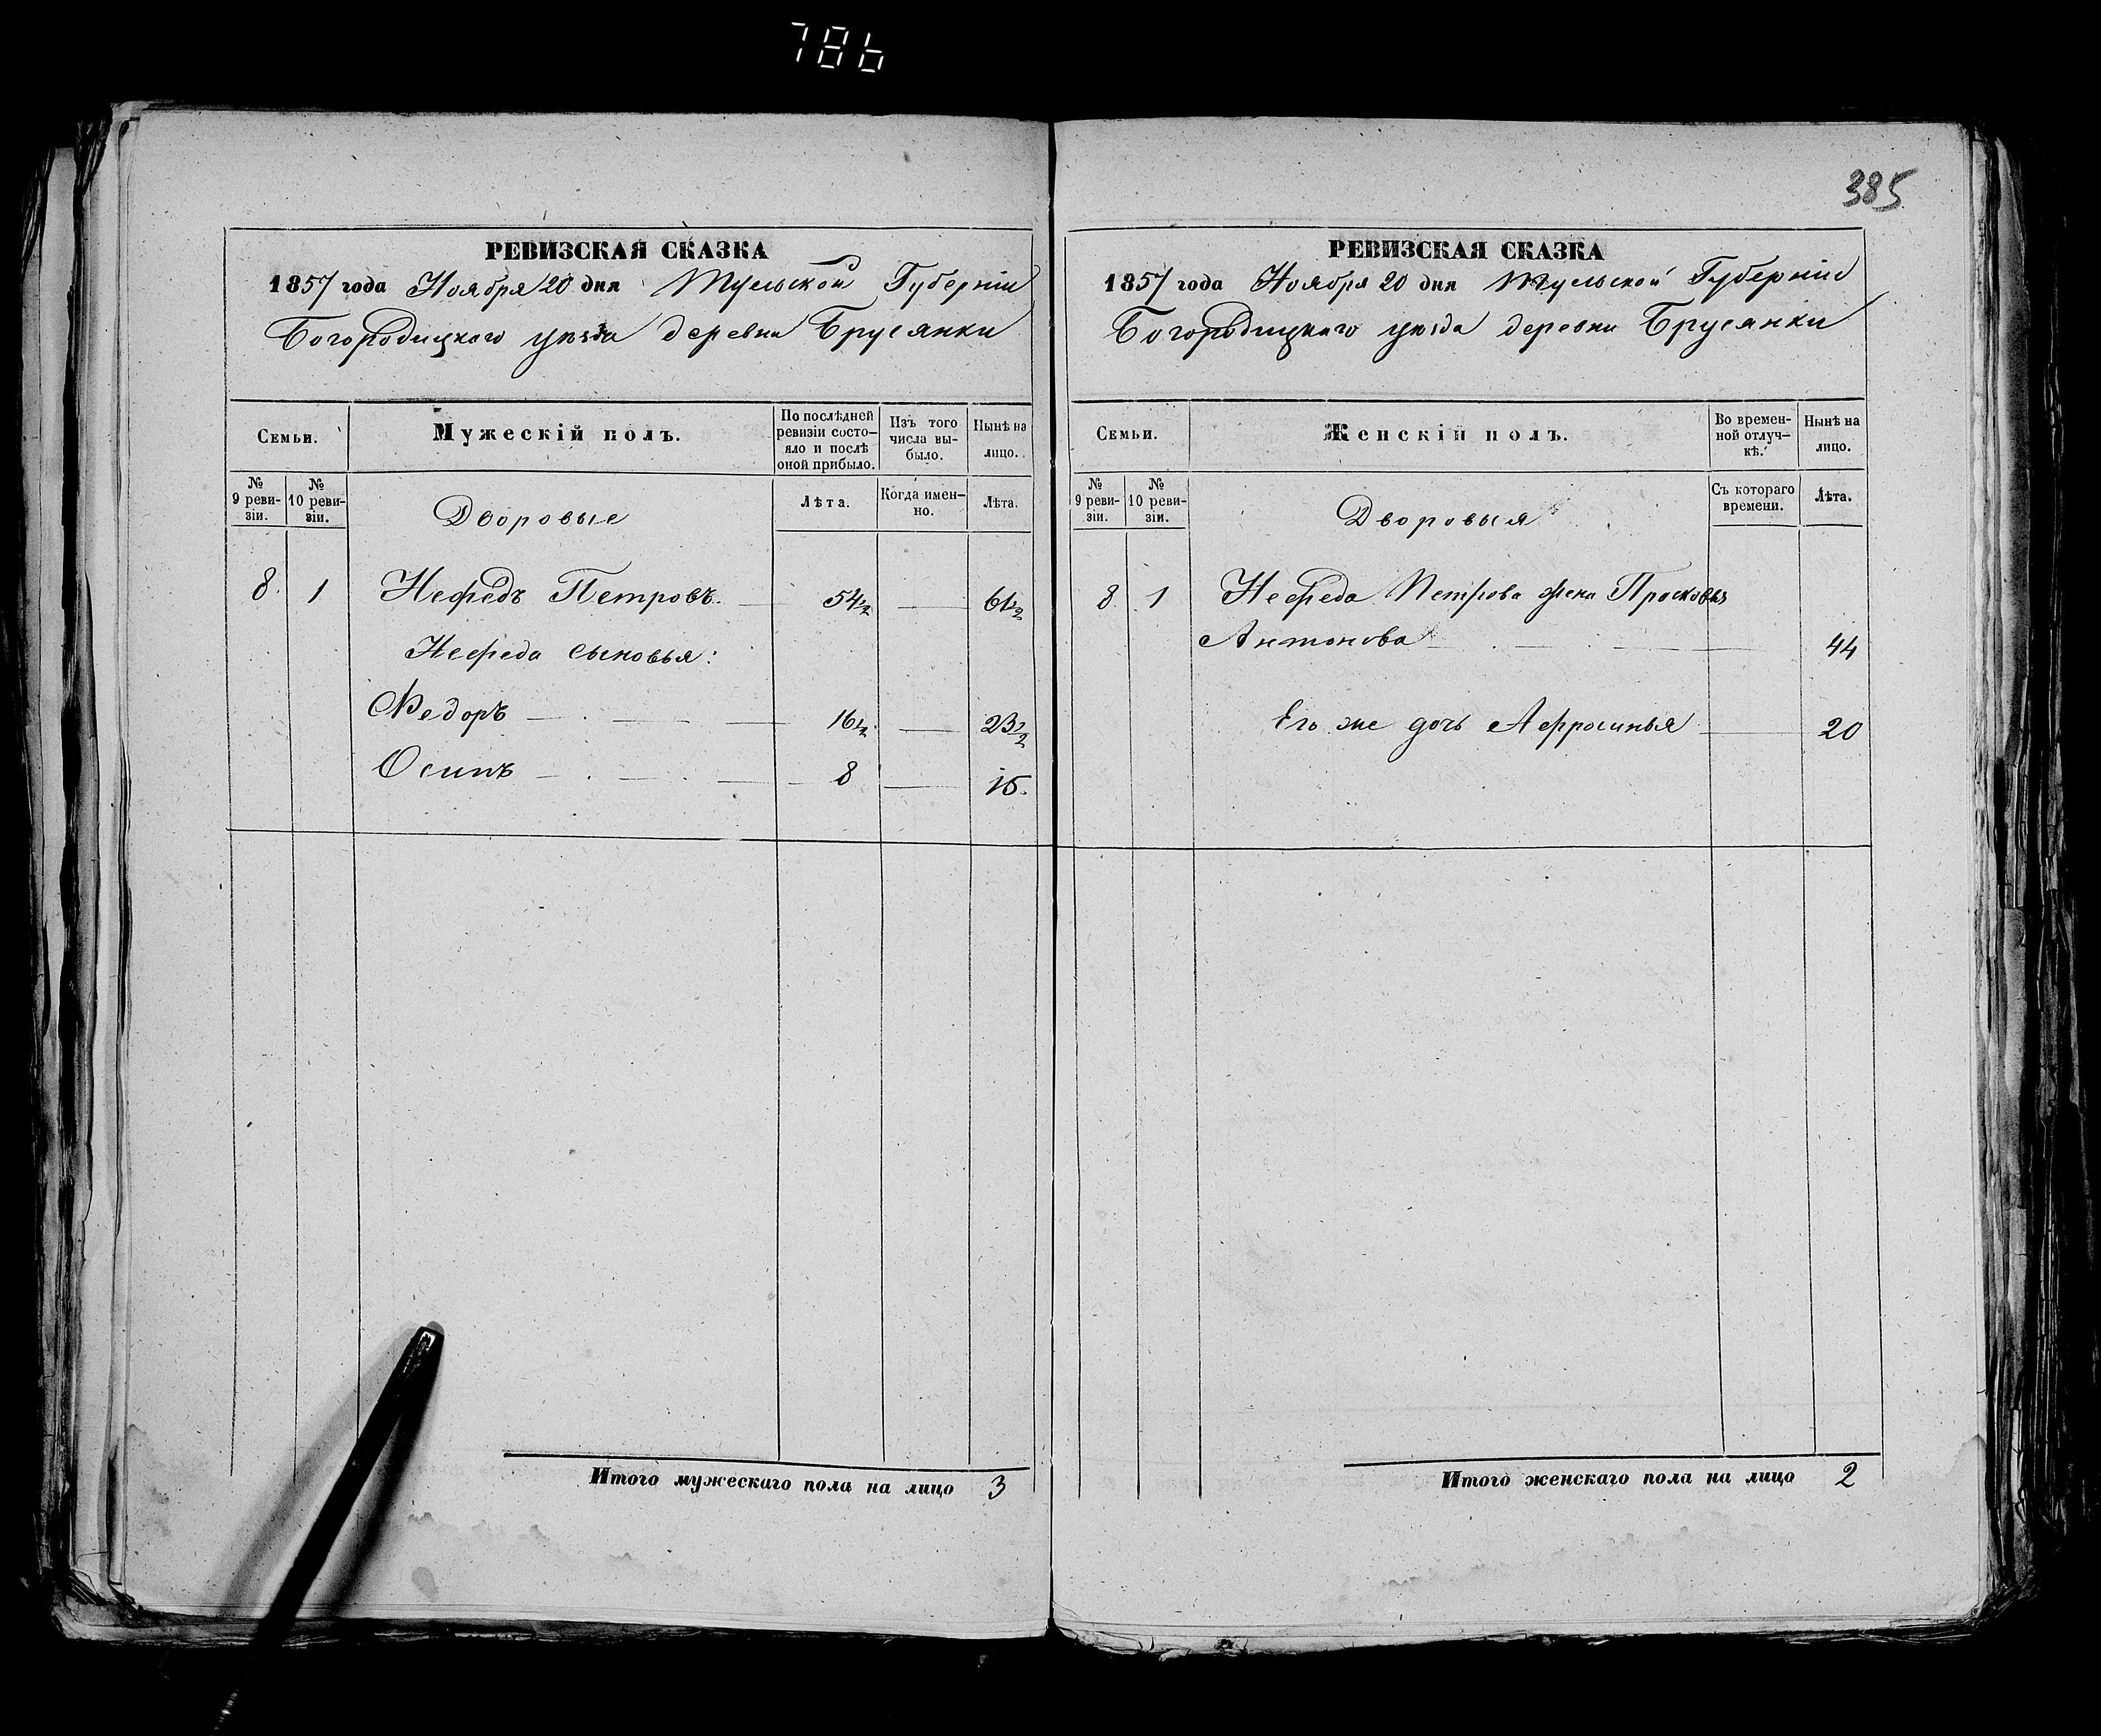 786
385
РЕВИЗСКАЯ СКАЗКА
1857 года Ноября 20 дня Тульской Губерніи
Богородицкаго уѣзда деревни Брусянки
Семьи.
Мужескій полъ.
По послѣдней ревизіи состояло и послѣ оной прибыло.
Изъ того числа выбыло.
Нынѣ на лицо.
№ 9 ревизіи.
№ 10 ревизіи.
Дворовые
Лѣта.
Когда именно.
Лѣта.
8. 1 Нефедъ Петровъ. 54½ 61½
Нефеда сыновья:
Федоръ 16½ 23½
Осипъ 8 15.
Итого мужескаго пола на лицо 3
РЕВИЗСКАЯ СКАЗКА
1857 года Ноября 20 дня Тульской Губерніи
Богородицкаго уѣзда деревни Брусянки
Семьи.
Женскій полъ.
Во временной отлучкѣ.
Нынѣ на лицо.
№ 9 ревизіи.
№ 10 ревизіи.
Дворовыя
Съ котораго времени.
Лѣта.
8 1 Нефеда Петрова жена Прасковья
Антонова 44
Его же дочь Афросинья 20
Итого женскаго пола на лицо 2